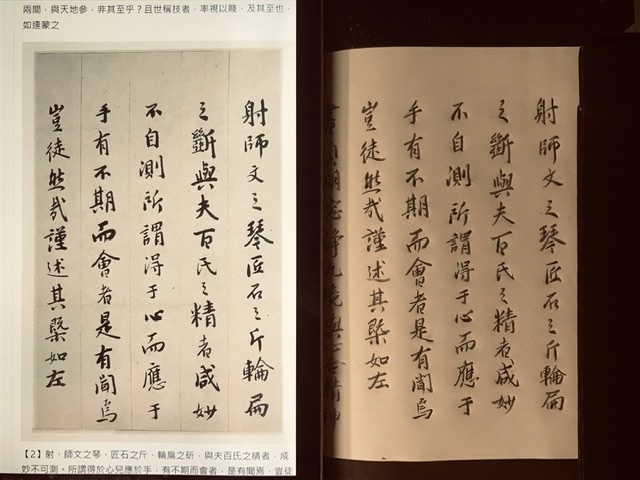 兩間，與天地參，非其至乎？且世稱技者，率視以賤，及其至也，
如逢蒙之
射師文之琴匠石之斤輪扁
之斲與夫百氏之精者咸妙
不自測所謂得于心而應于
手有不期而會者是有聞焉
豈徒然哉謹述其槩如左
【2】射、師文之琴、匠石之斤、輪扁之斫，與夫百氏之精者，咸
妙不可測。所謂得於心兒應於手，有不期而會者，是有聞焉，豈徒
射師文之琴匠石之斤輪扁
之斲與夫百氏之精者咸妙
不自測所謂得于心而應于
手有不期而會者是有聞焉
豈徒然哉謹述其槩如左